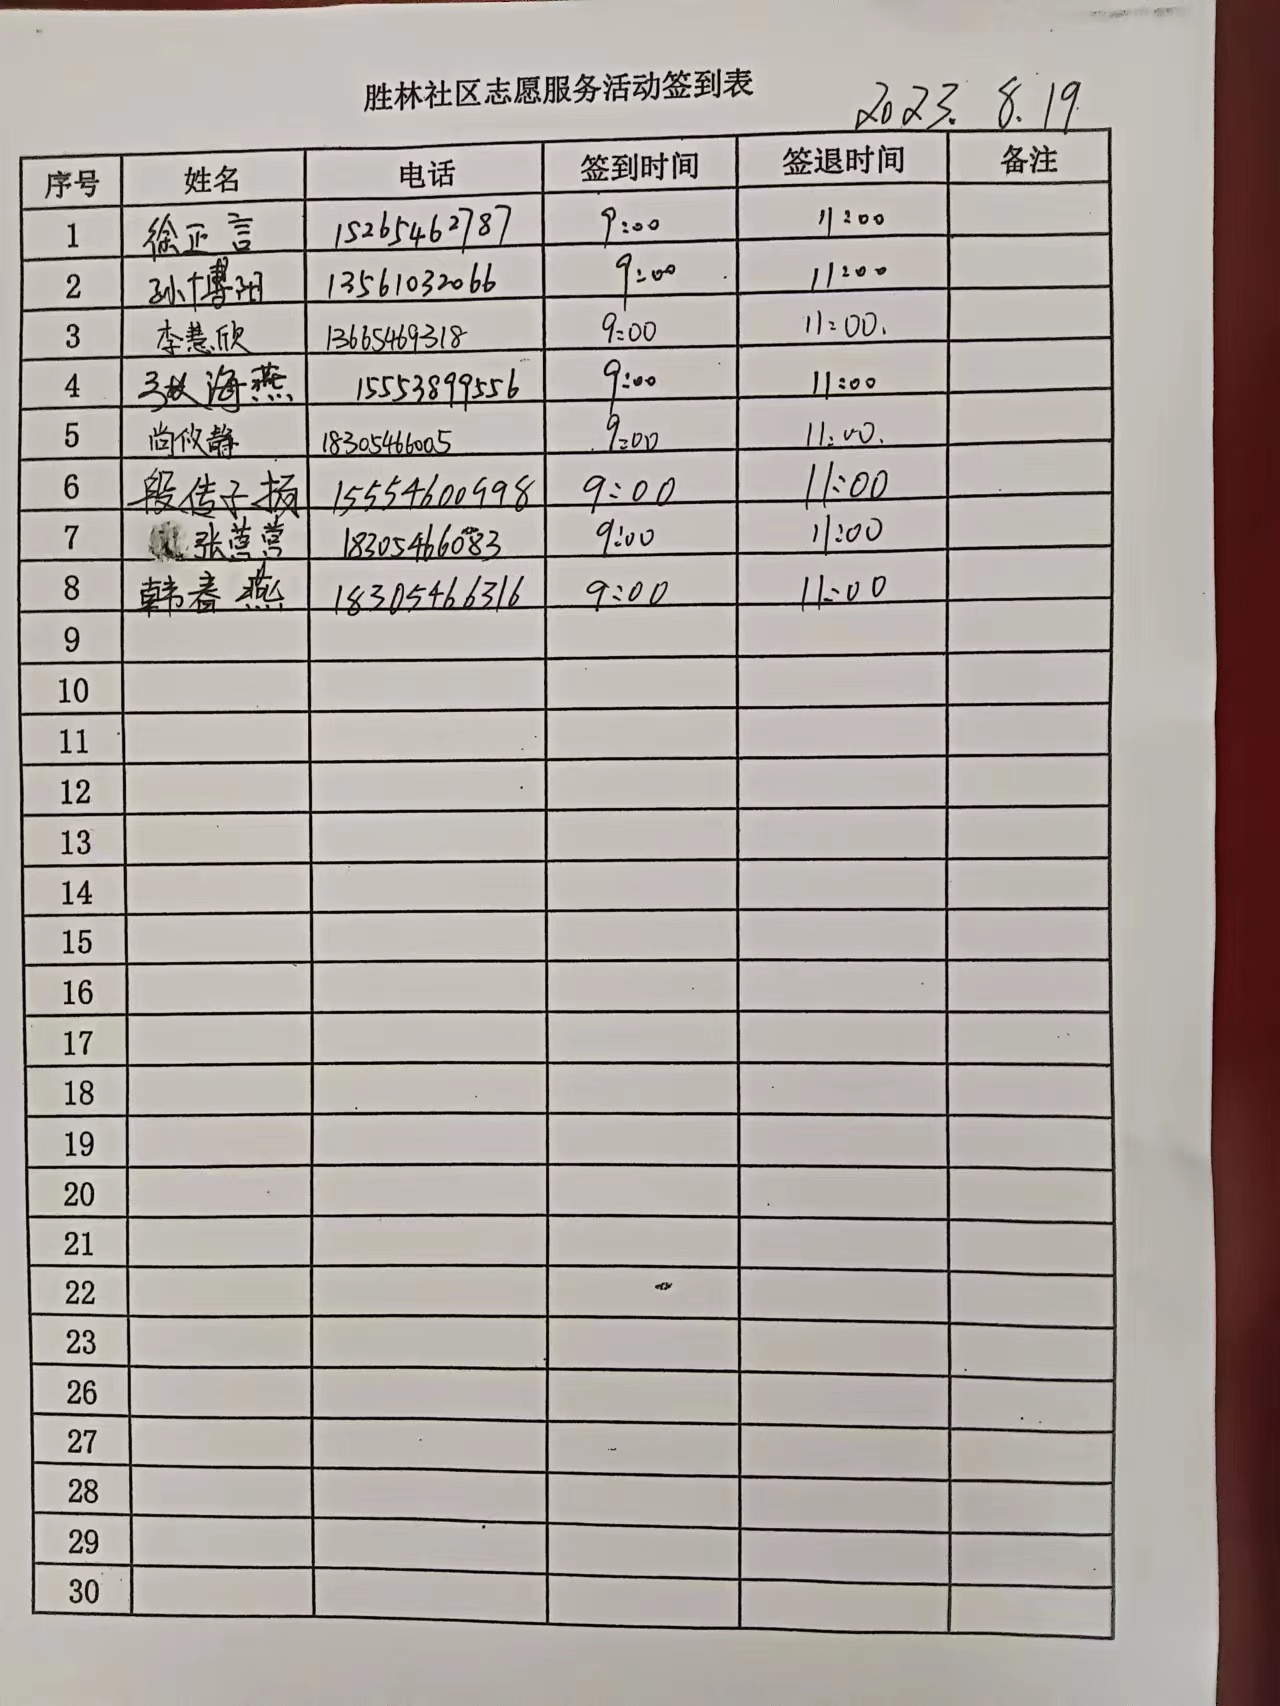 胜林社区志愿服务活动签到表
2023. 8. 19
序号 姓名 电话 签到时间 签退时间 备注
1 徐正言 15265462787 9:00 11:00
2 孙博阳 13561032066 9:00 11:00
3 李慧欣 13665469318 9:00 11:00.
4 海燕 15553899556 9:00 11:00
5 尚攸静 18305466005 9:00 11:00.
6 段传子扬 15554600998 9:00 11:00
7 张营营 18305466083 9:00 11:00
8 韩春燕 18305466316 9:00 11:00
9
10
11
12
13
14
15
16
17
18
19
20
21
22
23
26
27
28
29
30